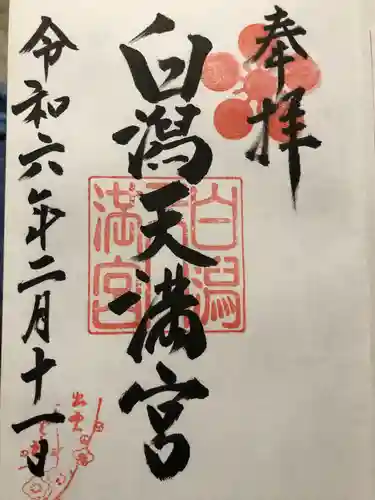 奉拝
白潟天満宮
白潟天満宮
令和六年二月十一日
出雲